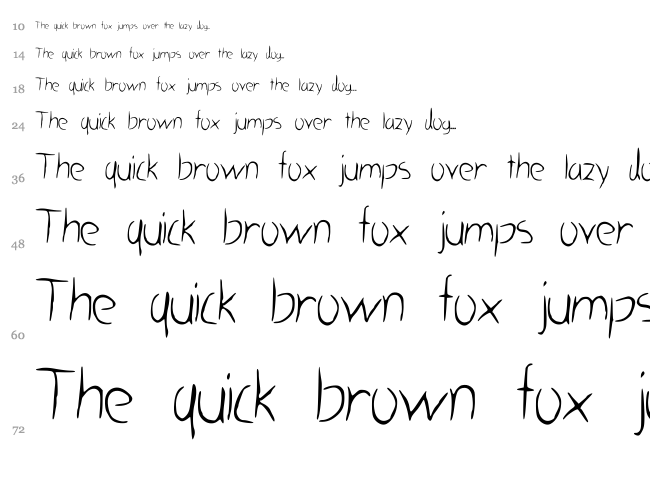 10 The quick brown fox jumps over the lazy dog.
14 The quick brown fox jumps over the lazy dog.
18 The quick brown fox jumps over the lazy dog..
24 The quick brown fox jumps over the lazy dog..
36 The quick brown fox jumps over the lazy do
48 The quick brown fox jumps over
60 The quick brown fox jumps
72 The quick brown fox j